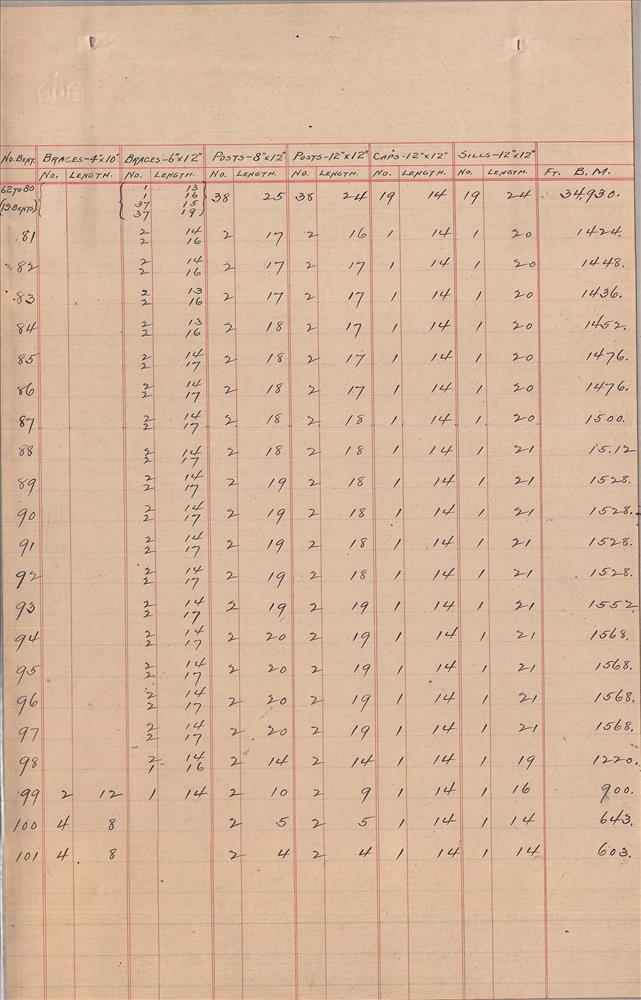 No. Bent. Braces-4"x10" Braces-6"x12" Posts-8"x12" Posts-12"x12" Caps-12"x12" Sills-12"x12"
No. Length. No. Length. No. Length. No. Length. No. Length. No. Length. Ft. B. M.
62 to 80 1 13
(19 Bents) 1 16 38 25 38 24 19 14 19 24 34,930.
37 15
37 19
81 2 14 2 17 2 16 1 14 1 20 1424.
2 16
82 2 14 2 17 2 17 1 14 1 20 1448.
2 16
83 2 13 2 17 2 17 1 14 1 20 1436.
2 16
84 2 13 2 18 2 17 1 14 1 20 1452.
2 16
85 2 14 2 18 2 17 1 14 1 20 1476.
2 17
86 2 14 2 18 2 17 1 14 1 20 1476.
2 17
87 2 14 2 18 2 18 1 14 1 20 1500.
2 17
88 2 14 2 18 2 18 1 14 1 21 15.12
2 17
89 2 14 2 19 2 18 1 14 1 21 1528.
2 17
90 2 14 2 19 2 18 1 14 1 21 1528.
2 17
91 2 14 2 19 2 18 1 14 1 21 1528.
2 17
92 2 14 2 19 2 18 1 14 1 21 1528.
2 17
93 2 14 2 19 2 19 1 14 1 21 1552.
2 17
94 2 14 2 20 2 19 1 14 1 21 1568.
2 17
95 2 14 2 20 2 19 1 14 1 21 1568.
2 17
96 2 14 2 20 2 19 1 14 1 21 1568.
2 17
97 2 14 2 20 2 19 1 14 1 21 1568.
2 17
98 2 14 2 14 2 14 1 14 1 19 1220.
1 16
99 2 12 1 14 2 10 2 9 1 14 1 16 900.
100 4 8 2 5 2 5 1 14 1 14 643.
101 4 8 2 4 2 4 1 14 1 14 603.